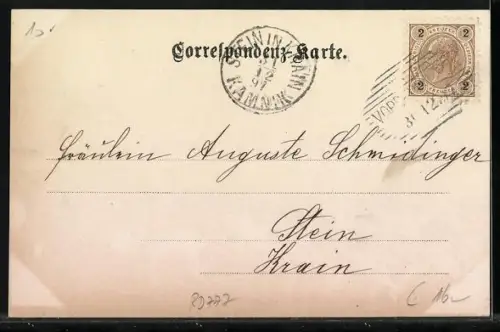 10.-
Correspondenz-Karte.
STEIN IN KRAIN
31
12
97
KAMNIK
2 2
2 2
31 12
Fräulein Auguste Schmidinger
Stein
Krain
89777